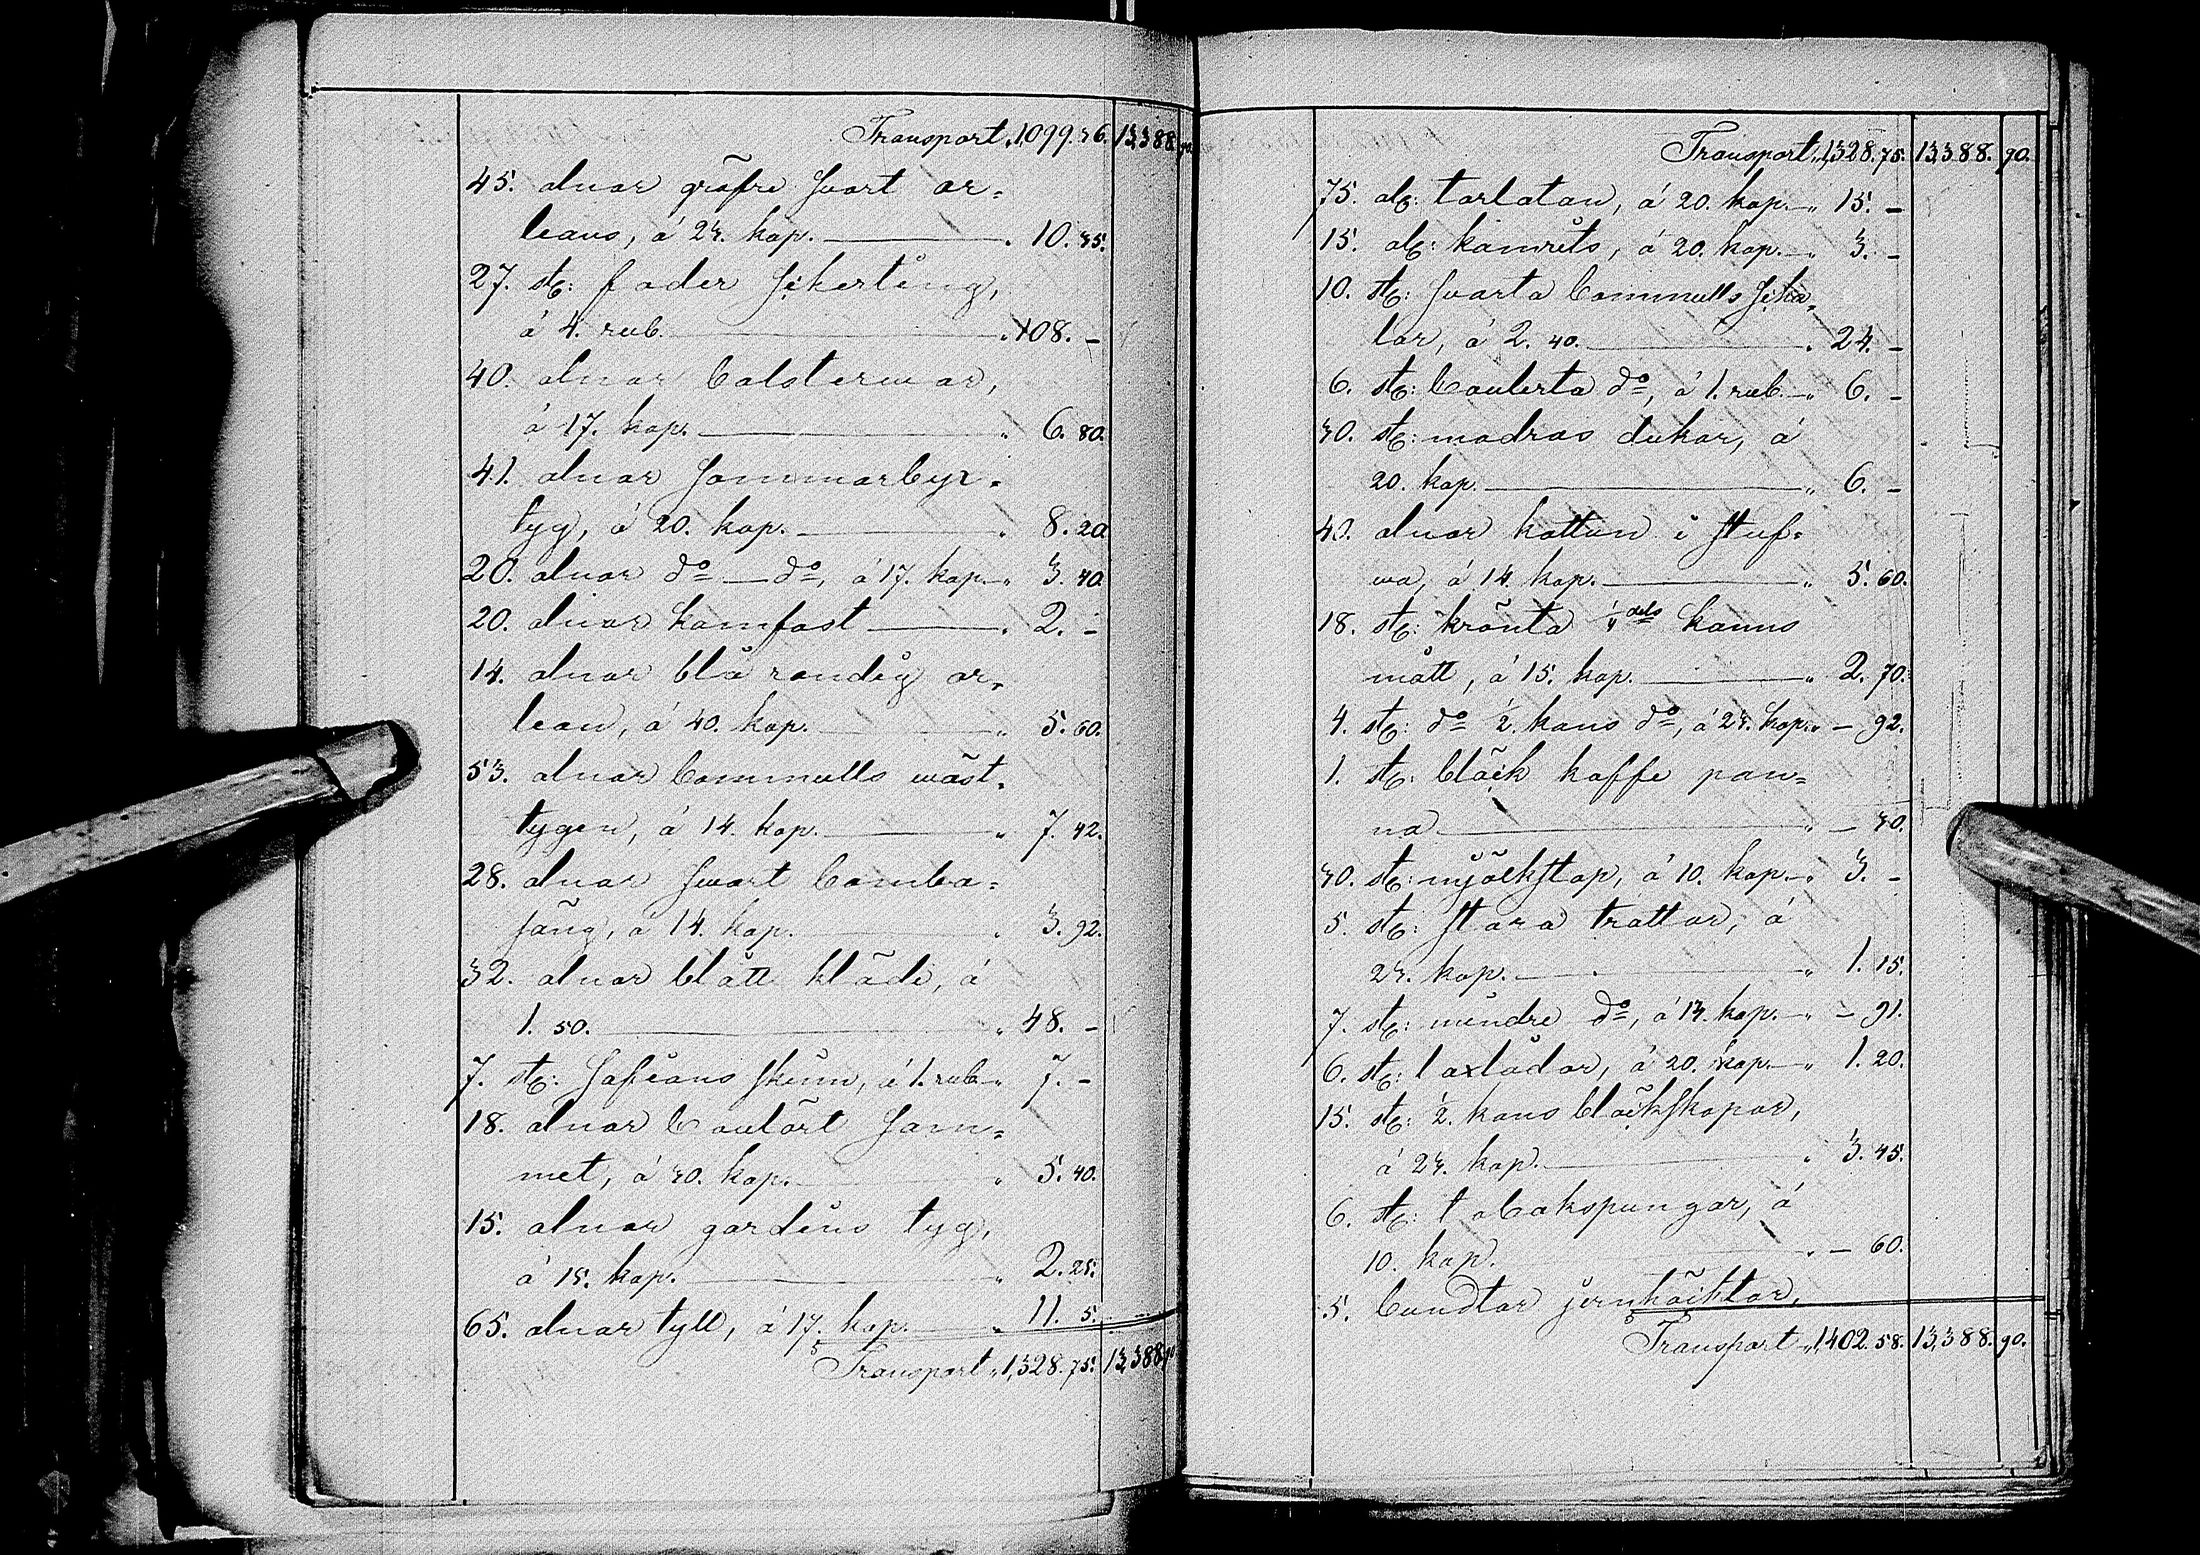 Transport „ 1,099. 36. 13,388. 90.
45. alnar gräfre svart or-
leans, á 23. kop. „ 10. 35.
27. st: foder sikerting,
á 4. rub. „ 108. –
40. alnar bolsterwar,
á 17. kop. „ 6. 80.
41. alnar sommarbyx-
tyg, á 20. kop. „ 8. 20
20. alnar do – do, á 17. kop. „ 3. 40.
20. alnar kamfast „ 2. –
14. alnar blå randig or-
lean, á 40. kop. „ 5. 60.
53. alnar bommulls wäst-
tygen, á 14. kop. „ 7. 42.
28. alnar svart bomba-
säng, á 14. kop. „ 3. 92.
32. alnar blått kläde, á
1. 50. „ 48. –
7. st: safians skinn, á 1. rub. „ 7. –
18. alnar coulört sam-
met, á 30. kop. „ 5. 40.
15. alnar gardins tyg,
á 15. kop. „ 2. 25.
65. alnar tyll, á 17. kop. „ 11. 5.
Transport „ 1,328. 75. 13,388. 90
Transport „ 1,328. 75. 13,388. 90.
75. al: tarlatan, á 20. kop. „ 15. –
15. al: kamrits, á 20. kop. „ 3. –
10. st: svarta bommulls sjka-
lar, á 2. 40. „ 24. –
6. st: coulerta do, á 1. rub. „ 6. –
30. st: madras dukar, á
20. kop. „ 6. –
40. alnar kattun i stuf-
wa, á 14. kop. „ 5. 60.
18. st: krönta 1/4 dels kanns
mått, á 15. kop. „ 2. 70.
4. st: do 1/2 kans do, á 23. kop. „ – 92.
1. st: bläck kaffe pan-
na „ – 30.
30. st: mjölkstop, á 10. kop. „ 3. –
5. st: stora trattar, á
23. kop. „ 1. 15.
7. st: mindre do, á 13. kop. „ – 91.
6. st: laxlådor, á 20. kop. „ 1. 20.
15. st: 1/2 kans bläckskopor,
á 23. kop. „ 3. 45.
6. st: tobakspungar, á
10. kop. „ – 60.
5. bundtar jernhäcktor,
Transport „ 1,402. 58. 13,388. 90.